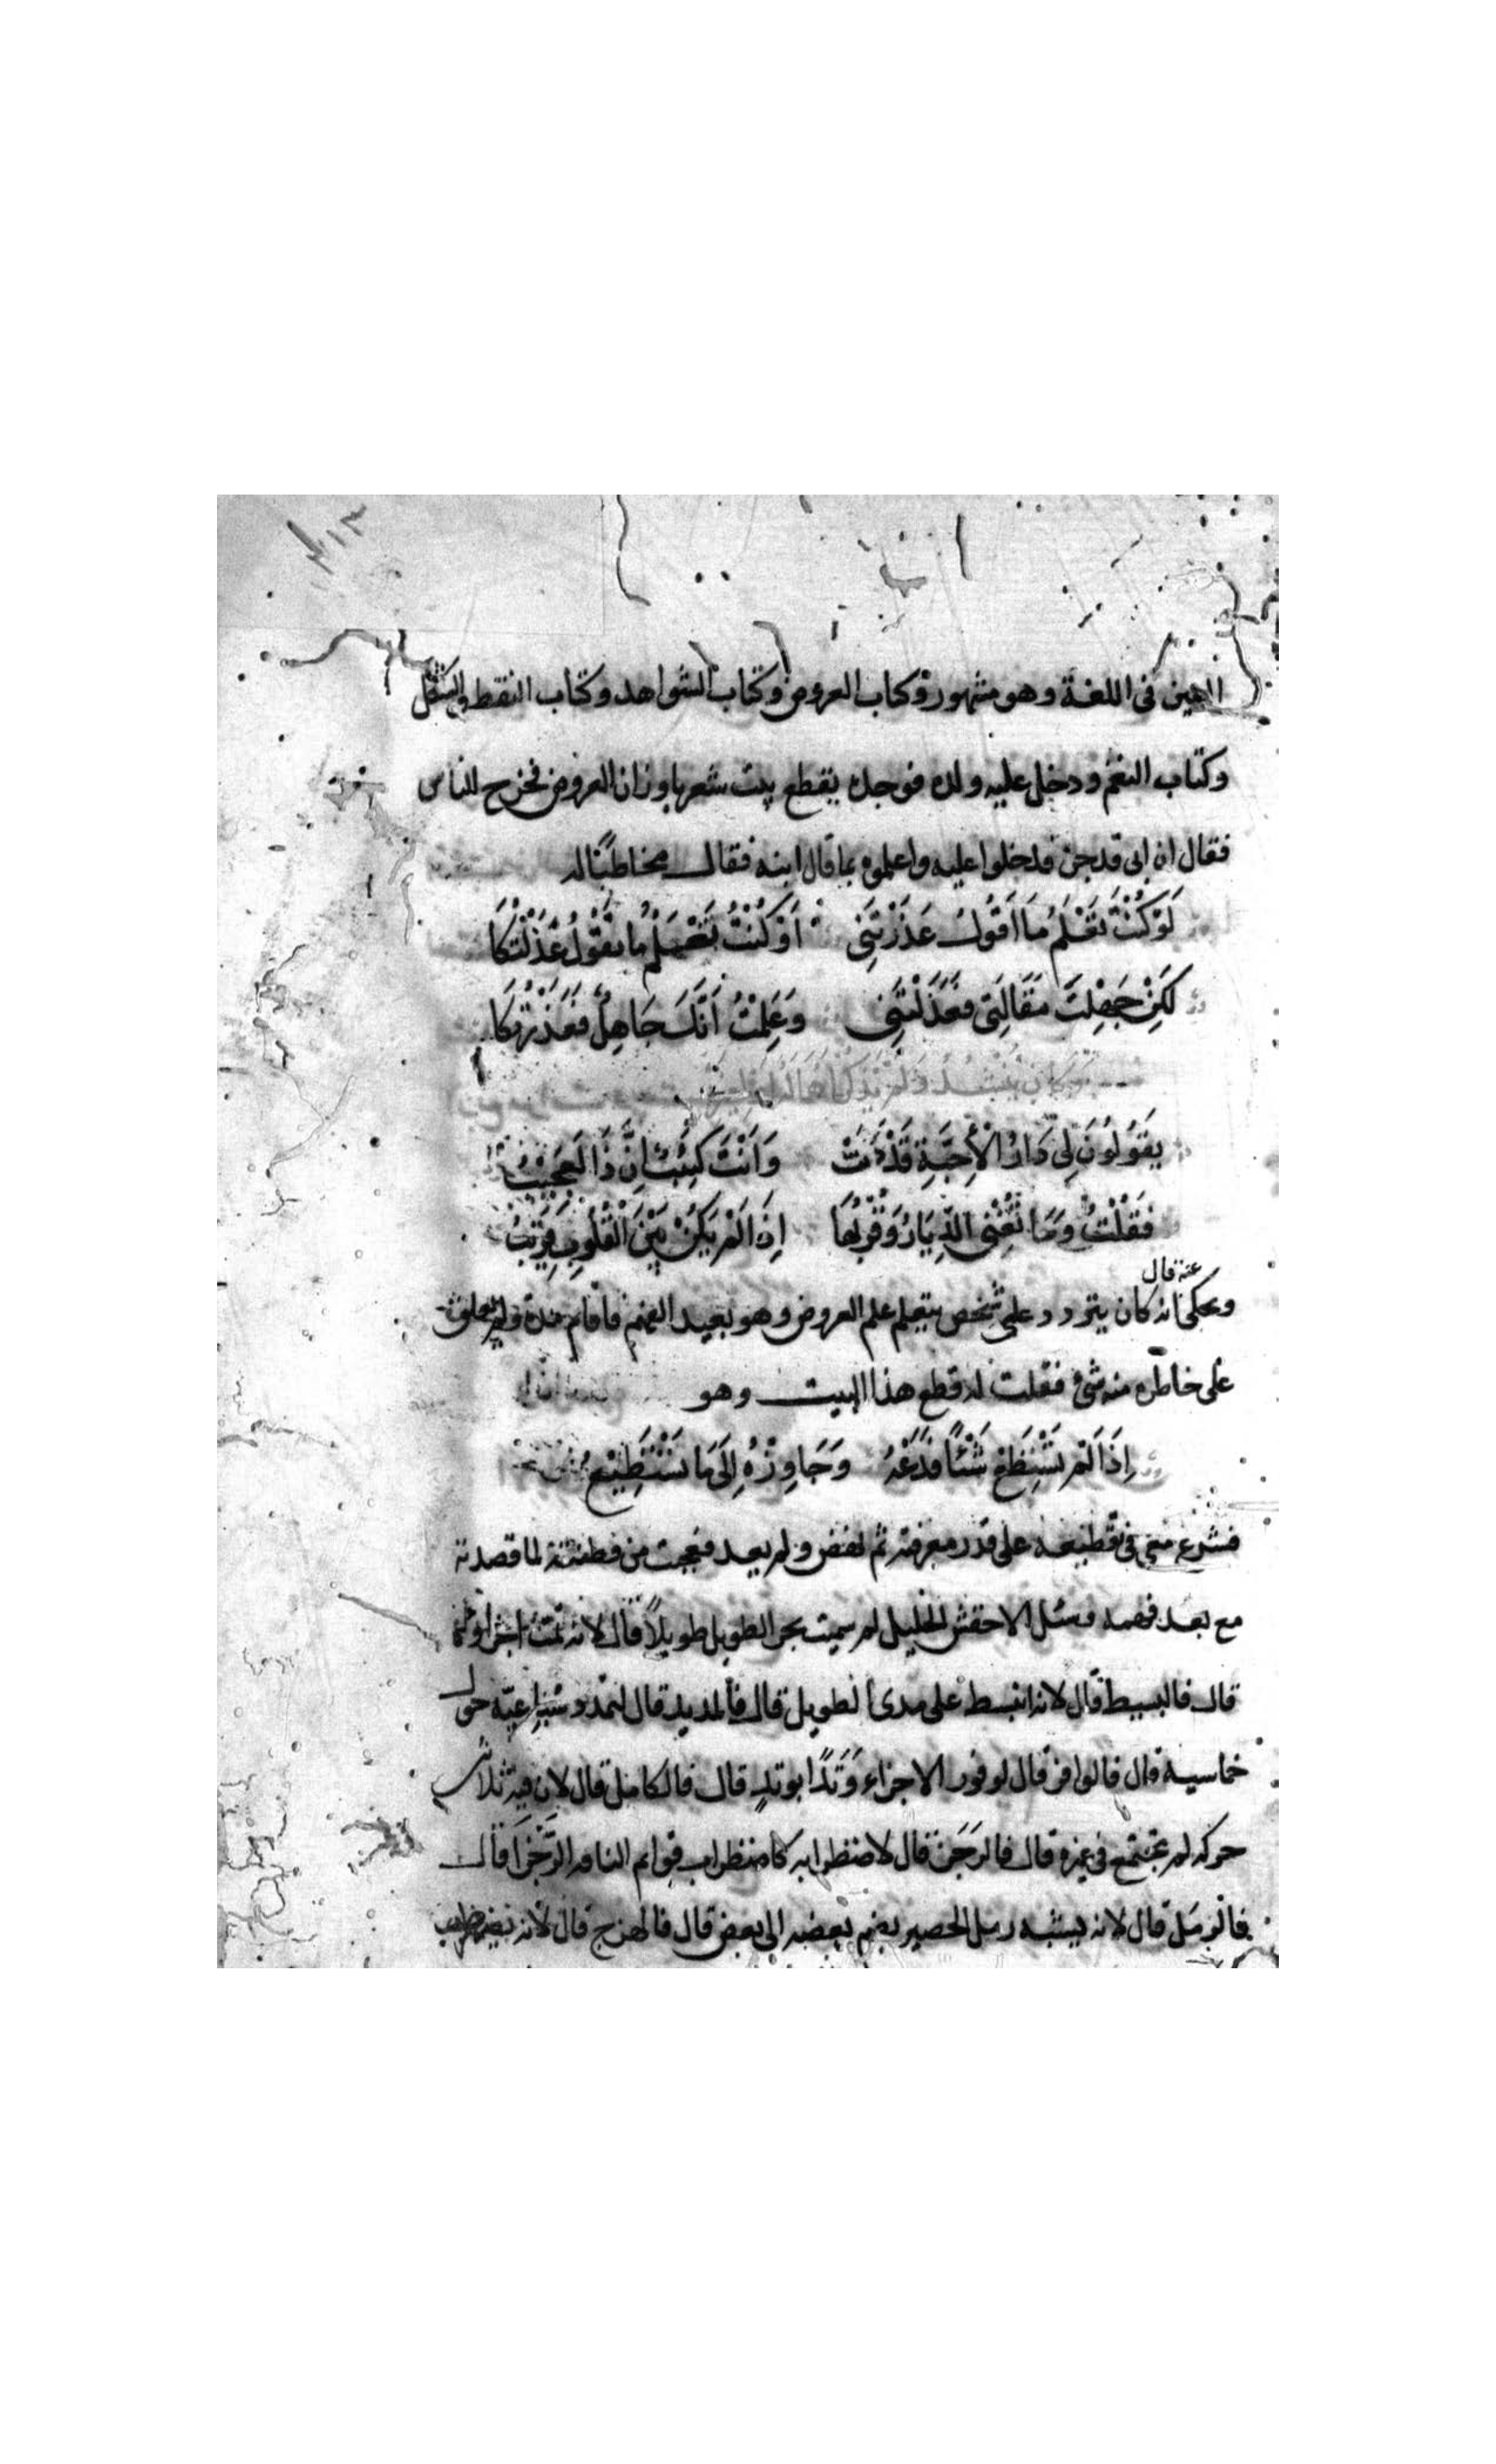 العين في اللغة وهو مشهور وكتاب العروض وكتاب الشواهد وكتاب النقط والشكل
وكتاب النغم ودخل عليه ولده فوجده يقطع بيت شعر باوزان العروض فخرج للناس
فقال ان ابي قد جن فدخلوا عليه واعلموه بما قال ابنه فقال مخاطبًا له
لَوْ كُنْتَ تَعْلَمُ مَا اَقُولُ عَذَرْتَنِي اَوْ كُنْتُ تَعْلَمُ مَا تَقُوْلُ عَذَلْتُكَا
لَكِنْ جَهِلْتَ مَقَالَتِي فَعَذَلْتَنِي وَعَلِمْتُ اَنَّكَ جَاهِلٌ فَعَذَرْتُكَا
وكان ينشد ولم يذكر
يَقُولُونَ لِي دَارُ الْأَحِبَّةِ قَدْ دَنَتْ وَاَنْتَ كَئِيْبٌ اِنَّ ذَا لَعَجِيْبُ
فَقُلْتُ وَمَا تُغْنِي الدِّيَارُ وَقُرْبُهَا اِذَا لَمْ يَكُنْ بَيْنَ الْقُلُوبِ قَرِيْبُ
عنه قال
ويحكى انه كان يتردد علي شخص يتعلم علم العروض وهو بعيد الفهم فاقام مدة ولم يعلق
على خاطره منه شئ فقلت له قطع هذا البيت وهو
اِذَا لَمْ تَسْتَطِعْ شَيْئًا فَدَعْهُ وَجَاوِزْهُ اِلَى مَا تَسْتَطِيْعُ
فشرع معي في تقطيعه على قدر معرفته ثم نهض ولم يعد فعجبت من فطنته لما قصدته
مع بعد فهمه وسئل الاخفش الخليل لم سميت بحر الطويل طويلاً قال لانه تمت اجزاوه
قال فالبسيط قال لانه انبسط على مدى الطويل قال فالمديد قال لتمدد سباعيه حول
خماسيه قال فالوافر قال لوفور الاجزاء وَتَدًا بوتدٍ قال فالكامل قال لان فيه ثلاثين
حركه لم تجتمع في غيره قال فالرَجَز قال لاضطرابه كاضطراب قوائم الناقه الرَّجْزَا قال
فالرمَل قال لانه يشبه رمل الحصير بضم بعضه الى بعض قال فالهزج قال لانه يضطرب